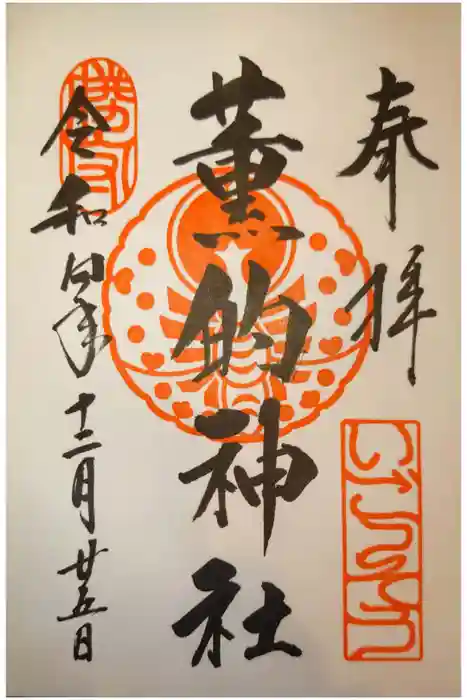 奉拝
薫的神社
令和四年十二月廿五日